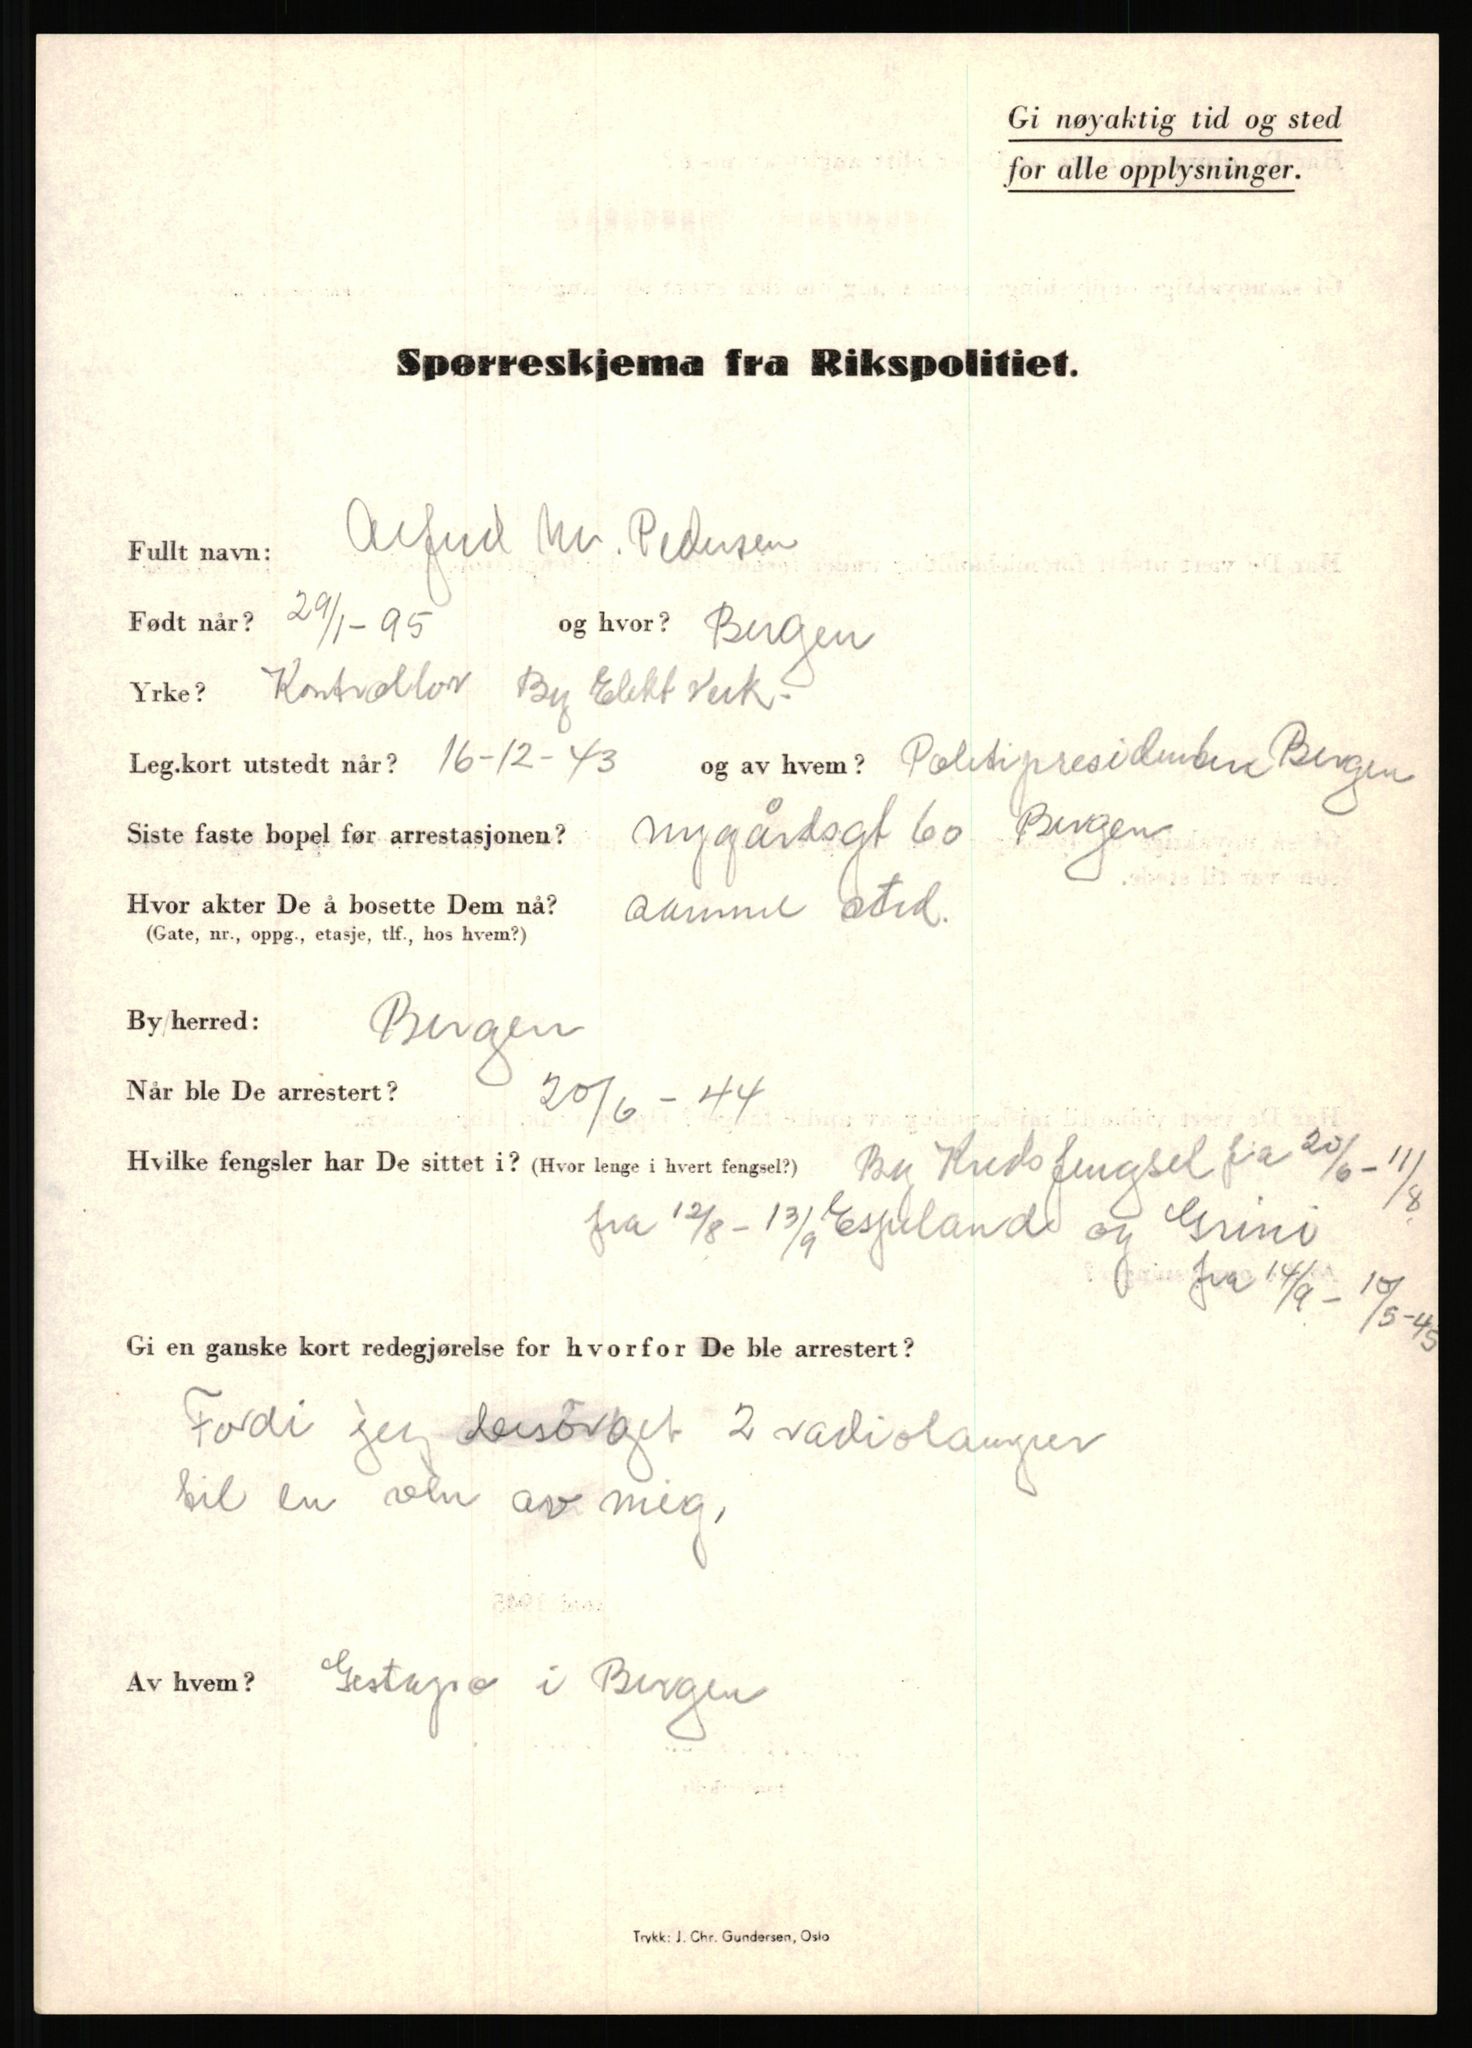 Gi nøyaktig tid og sted
for alle opplysninger.
Spørreskjema fra Rikspolitiet.
Fullt navn: Alfred M. Pedersen
Født når? 29/1-95 og hvor? Bergen
Yrke? Kontrollør By Elekt Verk.
Leg.kort utstedt når? 16-12-43 og av hvem? Politipresidenten Bergen
Siste faste bopel før arrestasjonen? Nygårdsgt 60 Bergen
Hvor akter De å bosette Dem nå? samme sted.
(Gate, nr., oppg., etasje, tlf., hos hvem?)
By/herred: Bergen
Når ble De arrestert? 20/6-44
Hvilke fengsler har De sittet i? (Hvor lenge i hvert fengsel?) Bg Kredsfengsel fra 20/6-11/8
fra 12/8-13/9 Espeland og Grini
fra 14/9-10/5-45
Gi en ganske kort redegjørelse for hvorfor De ble arrestert?
Fordi jeg besörget 2 radiolamper
til en ven av mig,
Av hvem? Gestapo i Bergen
Trykk: J. Chr. Gundersen, Oslo